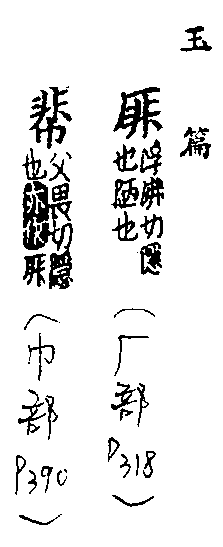 玉篇
厞
浮沸切隱
也陋也
(厂部P318)
父畏切隱
也亦作厞
(巾部P390)